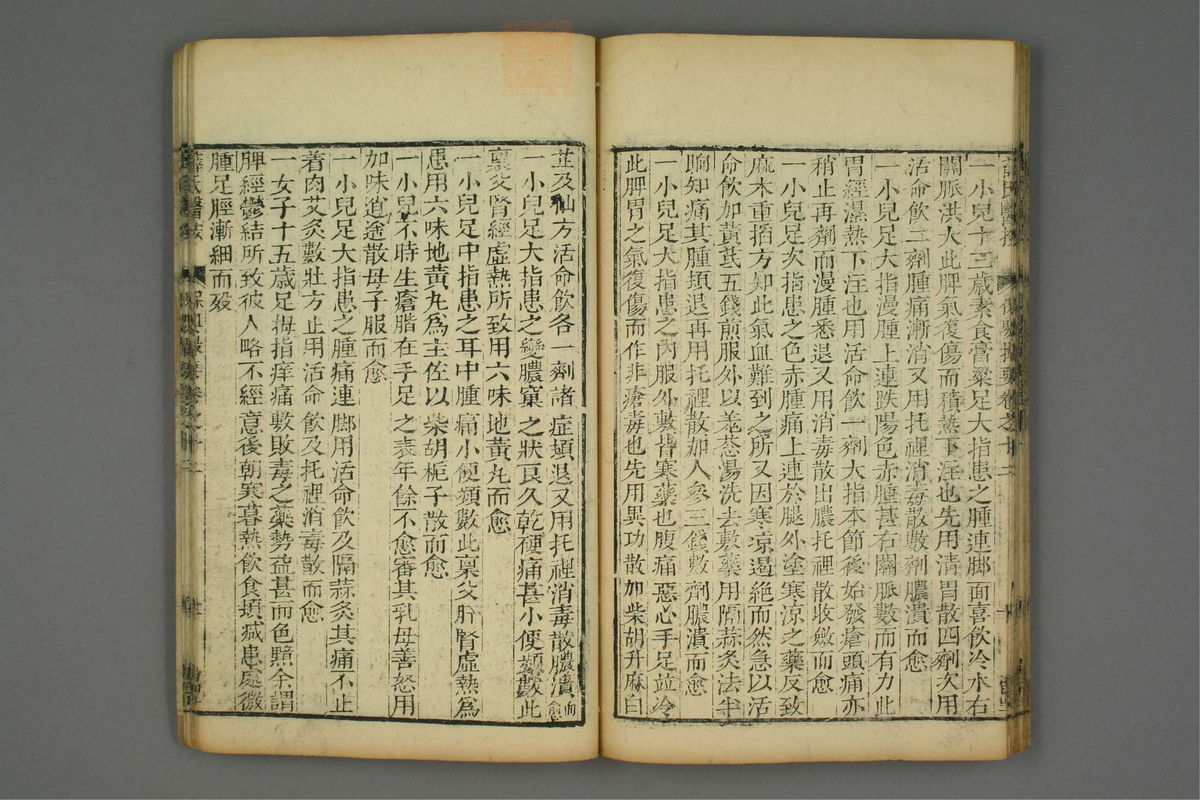 一小兒十三歲素食膏粱足大指患之腫連脚面喜飲冷水右
關脈洪大此脾氣復傷而積熱下注也先用清胃散四劑次用
活命飲二劑腫痛漸消又用托裡消毒散數劑膿潰而愈
一小兒足大指漫腫上連跌陽色赤腫甚右關脈數而有力此
胃經濕熱下注也用活命飲一劑大指本節後始發瘡頭痛亦
稍止再劑而漫腫悉退又用消毒散出膿托裡散收斂而愈
一小兒足次指患之色赤腫痛上連於腿外塗寒涼之藥反致
麻木重揞方知此氣血難到之所又因寒凉遏絕而然急以活
命飲加黃芪五錢煎服外以葱湯洗去敷藥用隔蒜灸法半
晌知痛其腫頓退再用托裡散加人參三錢數劑膿潰而愈
一小兒足大指患之內服外敷皆寒藥也腹痛惡心手足竝冷
此脾胃之氣復傷而作非瘡毒也先用異功散加柴胡升麻白
芷及仙方活命飲各一劑諸症頓退又用托裡消毒散膿潰而愈
一小兒足大指患之變膿窠之狀良久乾硬痛甚小便頻數此
稟父腎經虛熱所致用六味地黃丸而愈
一小兒足中指患之耳中腫痛小便頻數此稟父肝腎虛熱爲
患用六味地黃丸爲主佐以柴胡梔子散而愈
一小兒不時生瘡脂在手足之表年餘不愈審其乳母善怒用
加味逍遙散母子服而愈
一小兒足大指患之腫痛連脚用活命飲及隔蒜灸其痛不止
着肉艾灸數壯方止用活命飲及托裡消毒散而愈
一女子十五歲足拇指痒痛敷敗毒之藥勢益甚而色黯余謂
脾經鬱結所致彼人略不經意後朝寒暮熱飲食頓減患處微
腫足脛漸細而歿